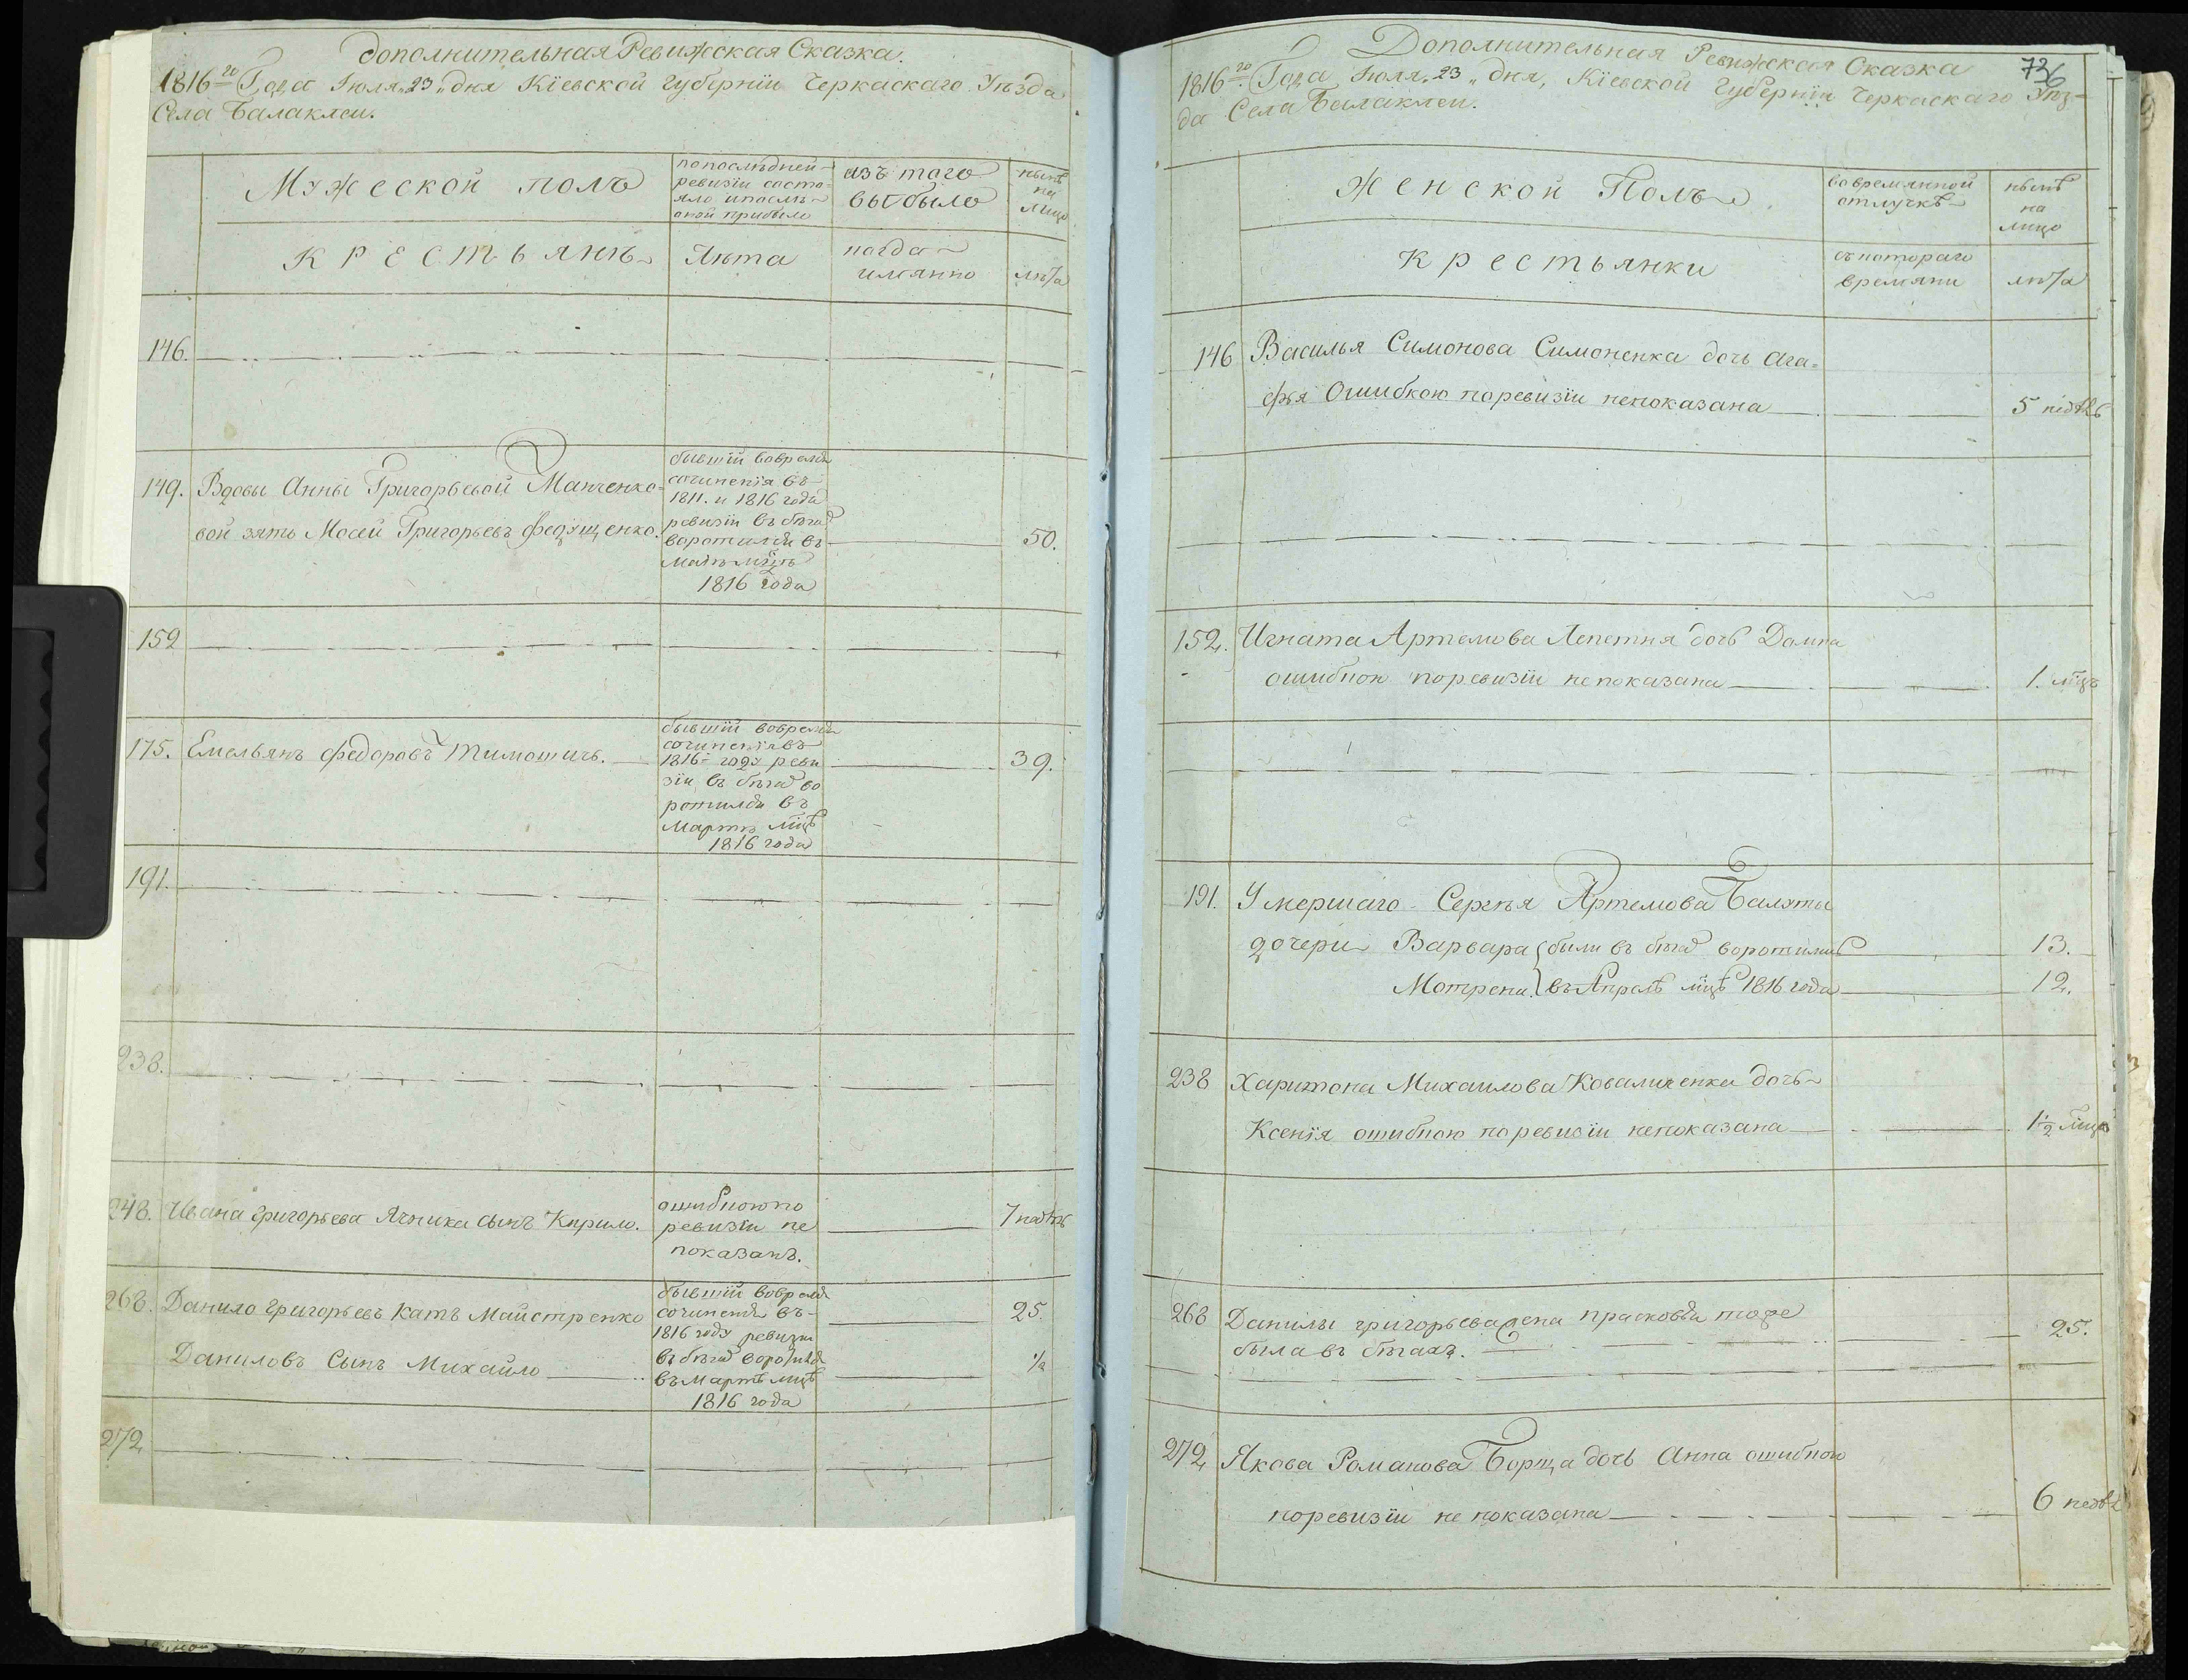 Дополнительная Ревижская Сказка.
1816го Года Июля „23„ дня Кіевской губерніи Черкаскаго Уѣзда
Села Балаклеи.
Мужеской полъ
попослѣдней
ревизіи состо-
яло ипослѣ
оной прибыло
изъ того
выбыло
нынѣ
на
лицо
крестьянъ
Лѣта
когда
имянно
лѣта
146.
149. Вдовы Анны Григорьевой Манченко-
вой зять Мосей Григорьевъ Федущенко.
бывшій вовремя
сочиненія въ
1811. и 1816 года
ревизіи въ бѣгах
воротился въ
маіѣ мцѣ
1816 года
50.
152
175. Емельянъ Федоровъ Тимошичь.
бывшій вовремя
сочиненія въ
1816 году реви
зіи въ бѣгах во
ротился въ
Мартѣ мцѣ
1816 года
39.
191.
238.
248. Ивана Григорьева Ячника сынъ Кирило.
ошибкою по
ревизіи не
показанъ.
7 недѣль
268. Данило Григорьевъ Катъ Майстренко
Даниловъ Сынъ Михайло
бывшій вовремя
сочиненія въ
1816 году ревизіи
въ бѣгах воротился
въ мартѣ мцѣ
1816 года
25.
½
272
Дополнительная Ревижская Сказка
736
1816го Года Июля „23„ дня, Кіевской Губерніи Черкаскаго Уѣз-
да Села Балаклеи.
Женской Полъ
вовремянной
отлучкѣ
нынѣ
на
лицо
крестьянки
съкотораго
времяни
лѣта
146 Василья Симонова Симоненка дочь Ага-
фья Ошибкою поревизіи непоказана 5 недѣль
152. Игната Артемова Лепетня дочь Домна
ошибкою поревизіи непоказана 1. мцъ
191. Умершаго Сергѣя Артемова Балэты
дочери Варвара были въ бѣгах воротились 13.
Мотрена. въ Апрѣлѣ мцѣ 1816 года 12.
238 Харитона Михаилова Коваличенка дочь
Ксенія ошибкою поревизіи непоказана 1½ мцъ
268 Данилы григорьева жена прасковья тоже 25.
была въ бѣгахъ.
272 Якова Романова Борща дочь Анна ошибкою
поревизіи не показана 6 недѣль